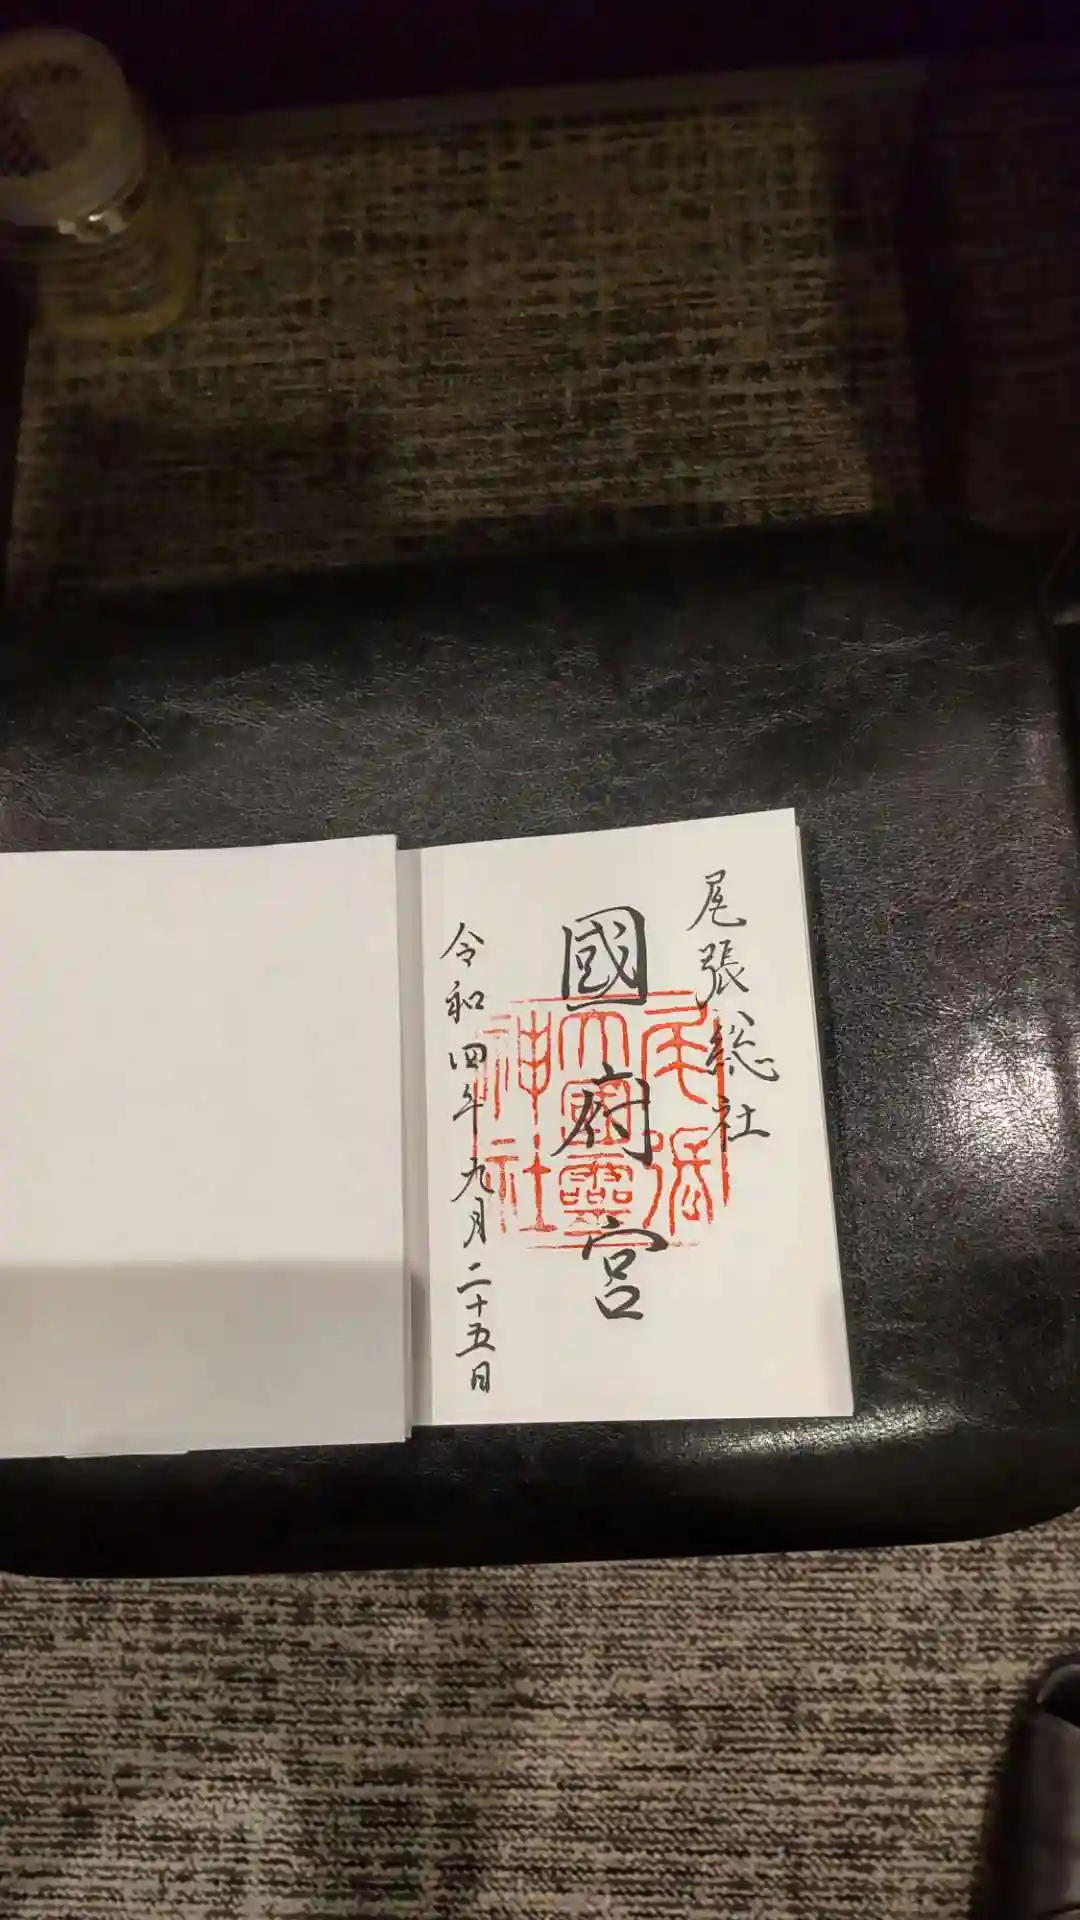 尾張総社
國府宮
令和四年九月二十五日
尾張
大國霊
神社